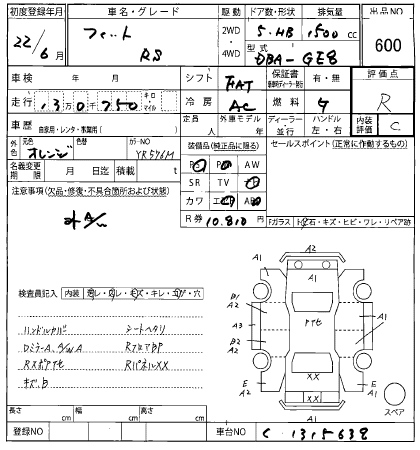 初度登録年月 車名・グレード 駆動 ドア数・形状 排気量 出品NO
22/6月 フィット RS 2WD・4WD 5・HB 1,500cc 600
型式 DBA-GE8
車検 年 月 シフト FAT 保証書 有・無 評価点
走行 13万0千750 キロ・マイル 冷房 AC 燃料 ガ R
車歴 自家用・レンタ・事業用( ) 定員 人 外車モデル 年 ディーラー 並行 ハンドル 左・右 内装評価 C
外色 元色 オレンジ 色替 カラーNO YR576M
装備品(純正品に限る) セールスポイント(正常に作動するもの)
名義変更期限 月 日 積載 t
AW
SR TV
カワ
R券 10,810
注意事項(欠品・修復・不具合箇所および状態)
Fガラス 石・キズ・ヒビ・ワレ・リペア跡
検査員記入 内装
ハンドルカバー シートヘタリ
DミラーA
キズ、B RパネルXX
A1 A2
B1 A2 A1
A3 A1
B2 A2
E A2 XX E A1
A1
スペア
長さ cm 幅 cm 高さ cm
登録NO 車台NO C 1315638